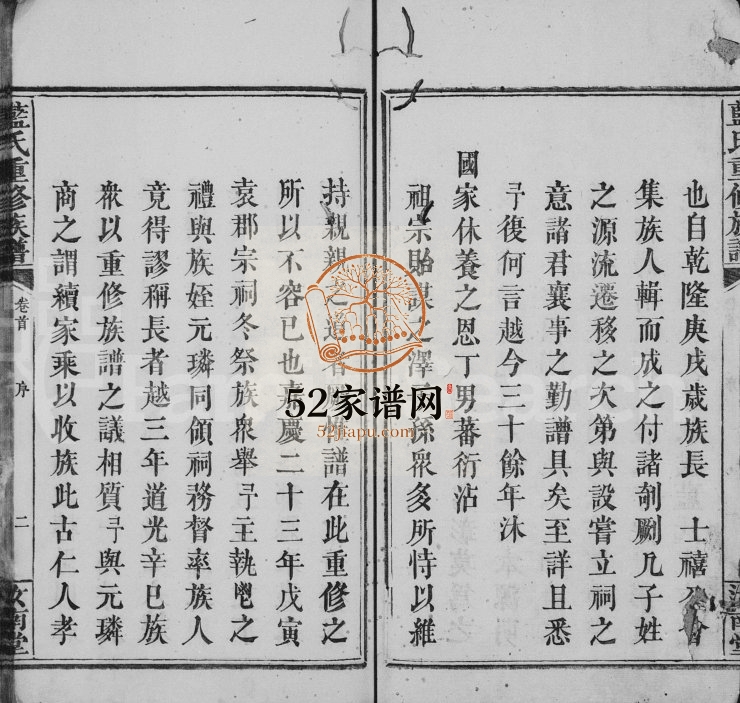 藍氏重修族譜
也自乾隆庚戌歲族長 士禧 會
集族人輯而成之付諸剞劂凡子姓
之源流遷移之次第與設嘗立祠之
意諸君襄事之勤譜具矣至詳且悉
予復何言越今三十餘年沐
國家休養之恩丁男蕃衍沾
祖宗貽謀之澤 孫衆多所恃以維
持親親之道者 譜在此重修之
所以不容已也嘉慶二十三年戊寅
袁郡宗祠冬祭族衆舉予主執鬯之
禮與族姪元璘同領祠務督率族人
竟得謬稱長者越三年道光辛巳族
衆以重修族譜之議相質予與元璘
商之謂續家乘以收族此古仁人孝
藍氏重修族譜
卷首
序
二
汝南堂
52家谱网
52jiapu.com